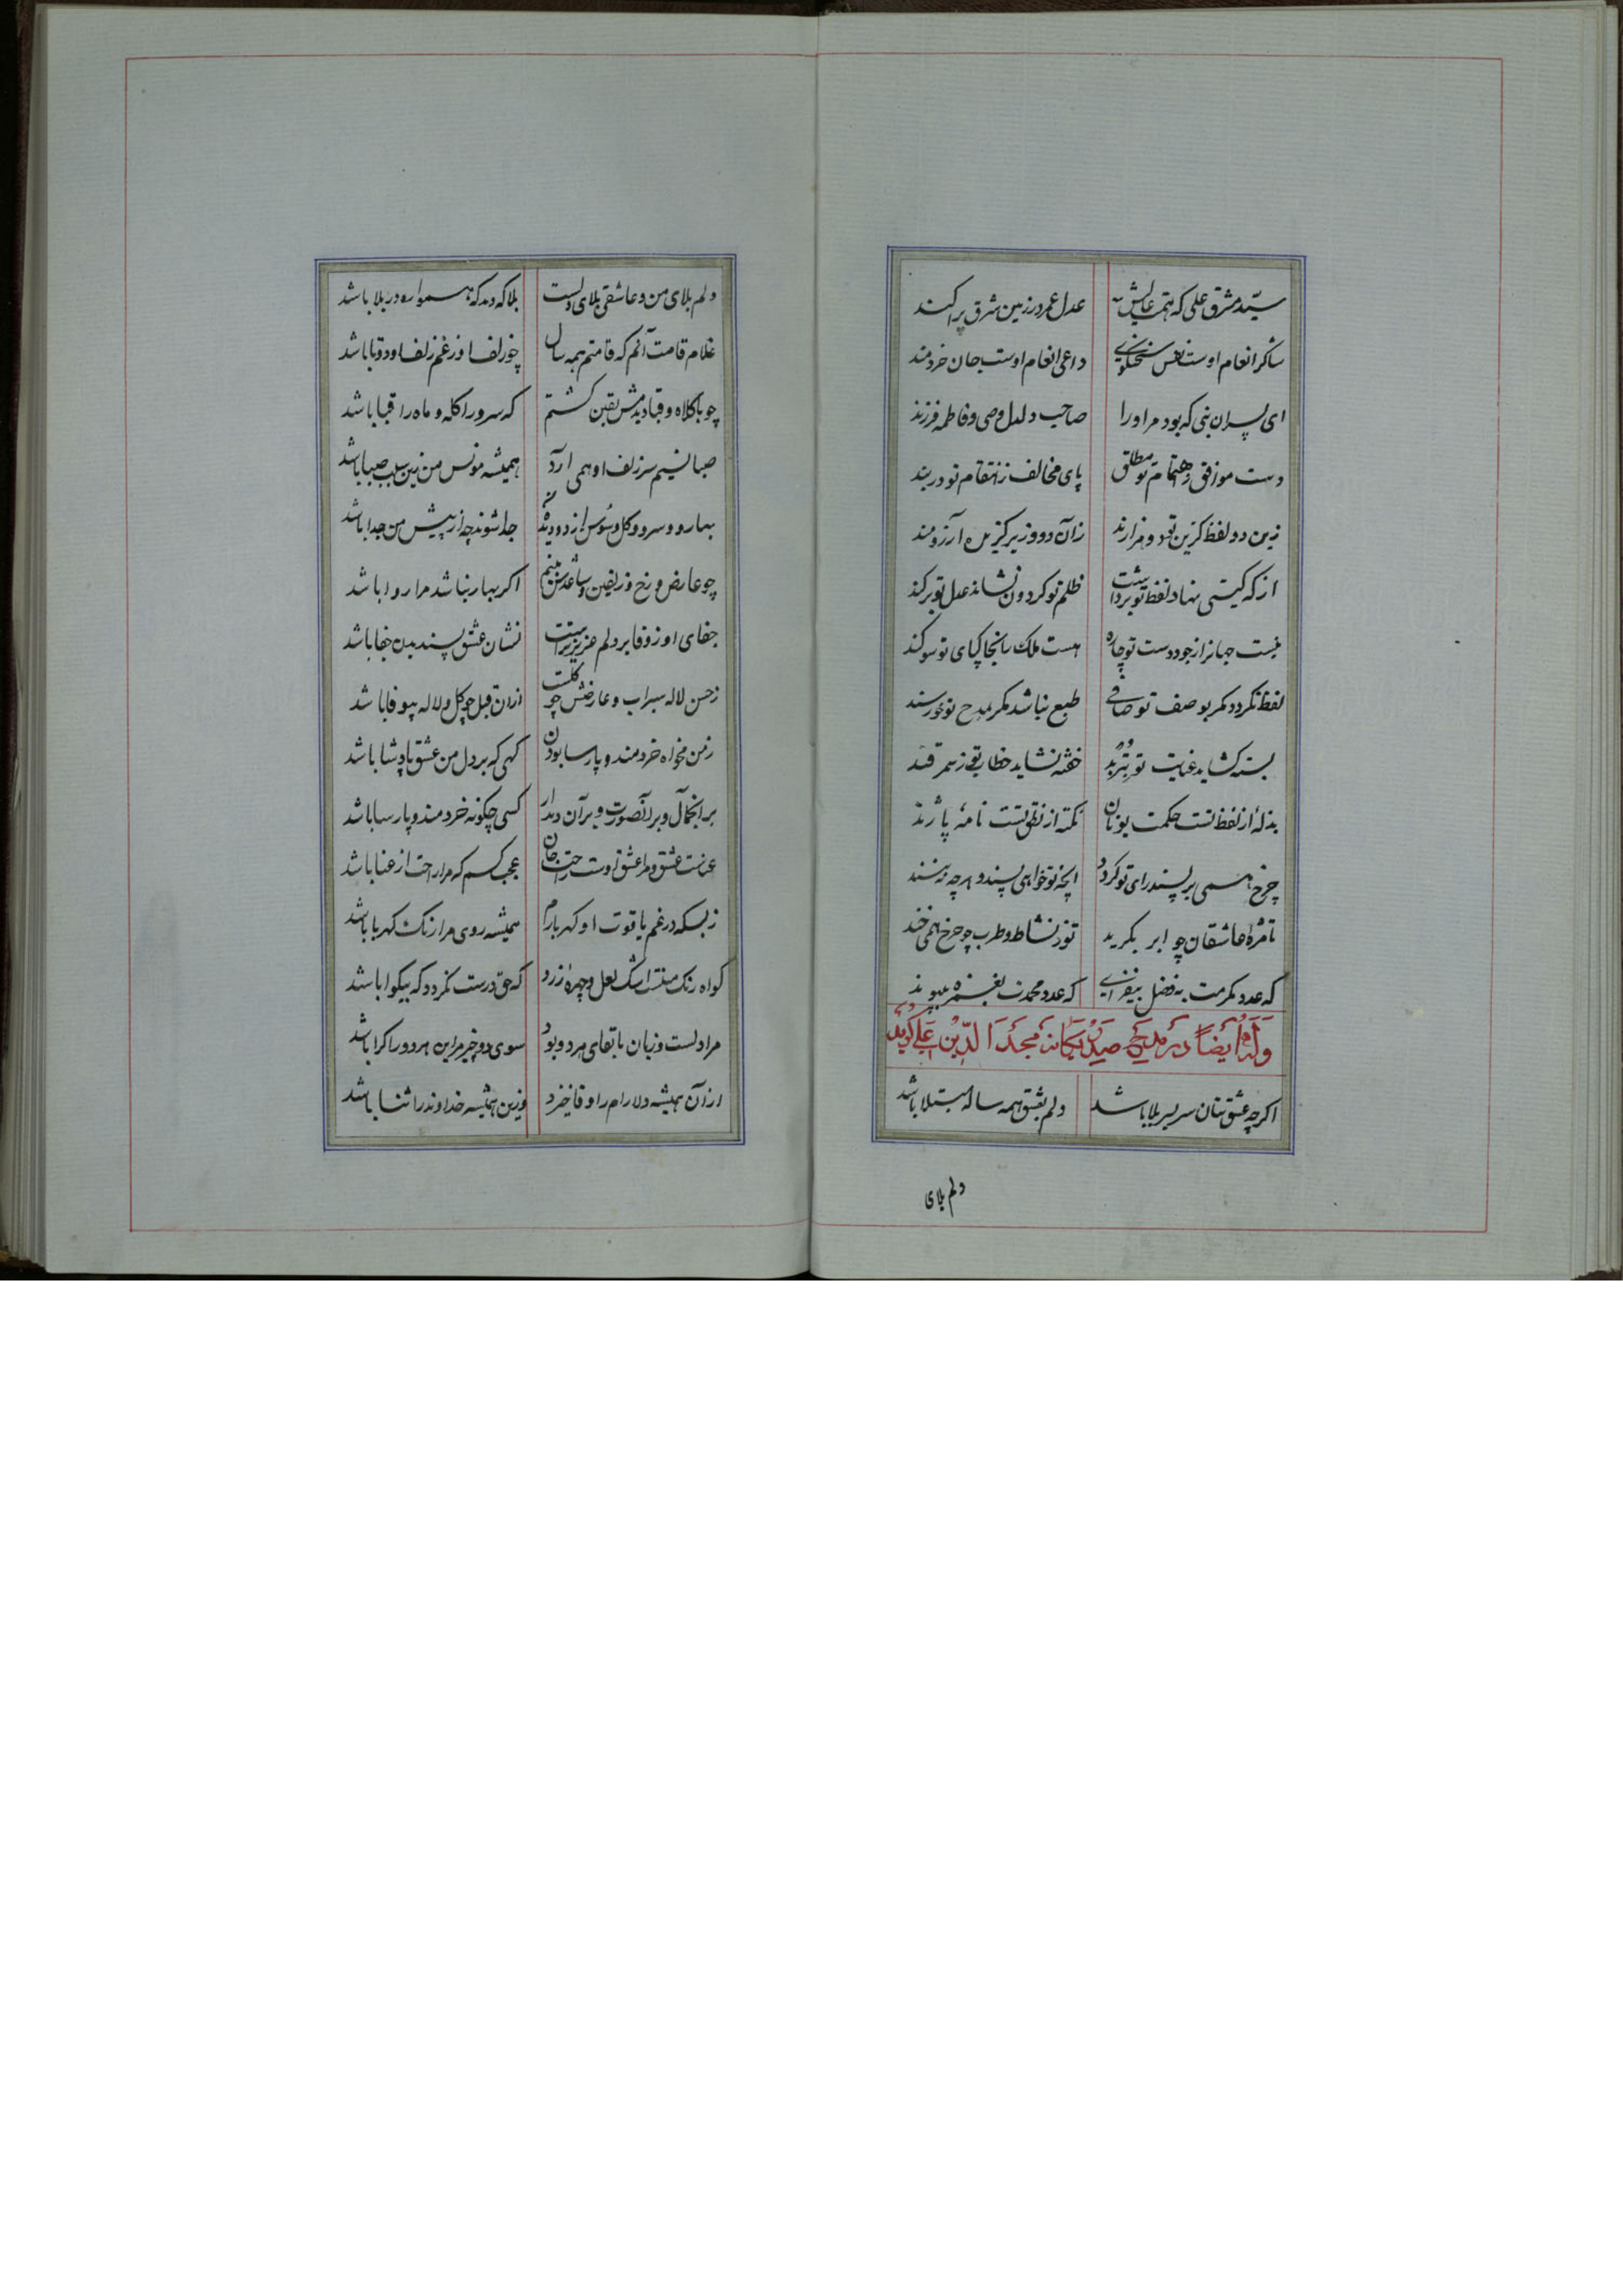 سیّد مشرق علی که همت عالیش عدل عمر در زمین شرق پراکند
شاکر انعام اوست نفس سخنگوی داعی انعام اوست جان خردمند
ای پسران نبی که بود مر او را صاحب دلدل وصی و فاطمه فرزند
دست موافق ز اهتمام تو مطلق پای مخالف ز انتقام تو در بند
زین دو لفظ کزین تو د و زان دو وزیر کزین آرزومند
از که کیتی نهاد لفظ تو برداشت ظلم تو کردون نشاند عدل تو برکند
نیست جهانرا ز جود دست تو چاره هست ملک را بخاکپای تو سوکند
لفظ نکردد مکر بوصف تو صافی طبع نباشد مکر بمدح تو خورسند
بسته کشاید عنایت تو خفته نشاید خطا ز سمرقند
بذلهٔ از لفظ تست حکمت یونان نکته از نطق تست نامهٔ پاژند
چرخ همی بر پسند رای تو کردد آنچه تو خواهی پسند و هرچه نه مپسند
تا مژهٔ عاشقان چو ابر بکرید تو ز نشاط و طرب چو چرخ همی خند
که عدد مکرمت به فضل بیفزای که عدد محمدت بغمزه بپیوند
وَلَهُ اَیضاً در مدیح صید یکانه مجدالدّین علی کوید
اکر چه عشق بتان سر بسر بلا باشد دلم بعشق همه ساله مبتلا باشد
دلم بلای
دلم بلای من و عاشقی بلای دلست بلا که دید که همواره در بلا باشد
غلام قامت آنم که قامتم همه سال چو زلف او ز غم زلف او دوتا باشد
چو با کلاه و قبا دیدمش یقین کشتم که سرو را کله و ماه را قبا باشد
صبا نسیم سر زلف او همی آرد همیشه مونس من زین سبب صبا باشد
بهار و سرو و کل و سوسن از دو دیده جدا شوند چه از پیش من جدا باشد
چو عارض و رخ و زلفین و ساعدش بینم اکر بهار نباشد مرا روا باشد
جفای او ز وفا بر دلم عزیزتر است نشان عشق پسندیدن جفا باشد
ز حسن لاله سیراب و عارضش چو کلست ازان قبل چو کل و لاله بیوفا باشد
ز من مخواه خردمند و پارسا بودن کهی که بر دل من عشق پادشا باشد
بر آن جمال و بر آن صورت و بر آن دیدار کسی چکونه خردمند و پارسا باشد
عناست عشق و مرا عشق اوست راحت جان عجب کسم که مرا راحت از عنا باشد
ز بسکه در غم یاقوت او کهر بارم همیشه روی مرا رنک کهربا باشد
کواه رنک منست اشک لعل و چهره زرد که حق درست نکردد که بیکوا باشد
مرا دلست و زبان تا بقای هر دو بود سوی دو چیز مر این هر دو را کرا باشد
از آن همیشه دلارام را وفا خیزد وزین همیشه خداوند را ثنا باشد